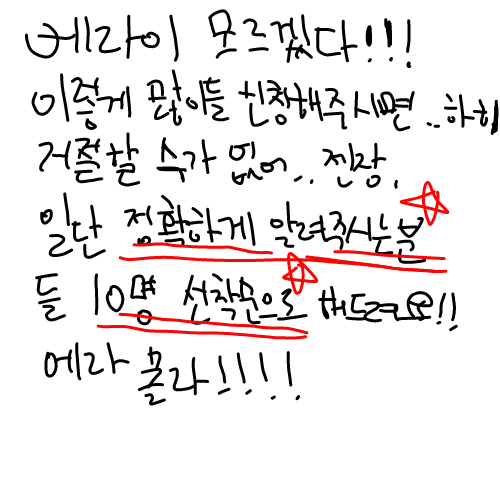 에라이 모르겠다!!!
이렇게 많이들 신청해주시면..하하
거절할 수가 없어... 젠장.
일단 정확하게 알려주시는분
들 10명 선착순으로 해드려요!!
에라 몰라!!!!